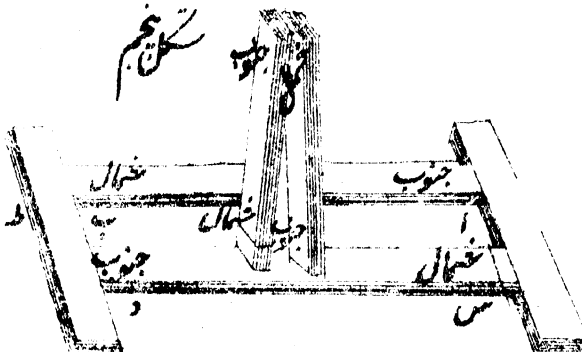 شکل پنجم
جنوب شمال
شمال جنوب
ا
شمال جنوب
جنوب شمال
د س